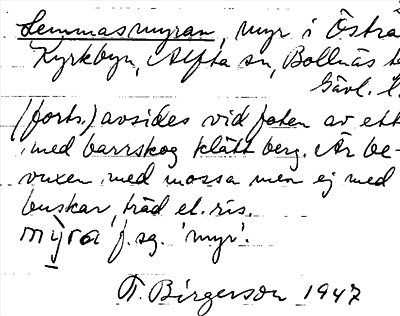 Lemmasmyran, myr i Östra
Kyrkbyn, Alfta sn, Bollnäs
Gävl. l.
(forts.) avsides vid foten av ett
med barrskog klätt berg. Är be-
vuxen med mossa men ej med
buskar, träd el. ris.
mỵra f. sg. 'myr'.
T. Birgerson 1947